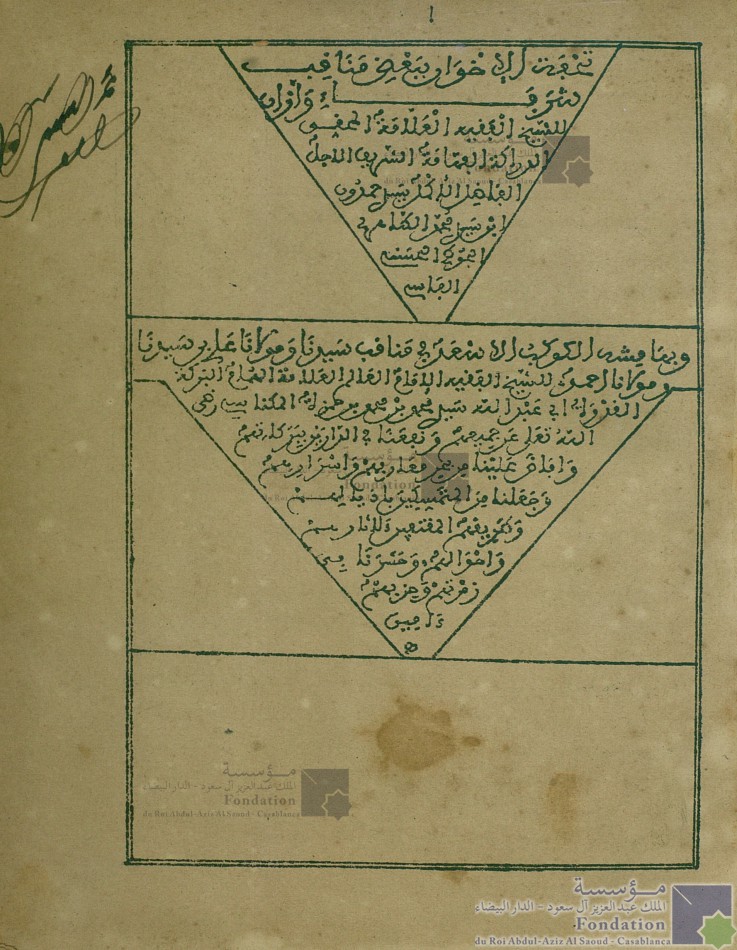 ١
تحفة الاخوان ببعض مناقب
شرفاء وازان
للشيخ الفقيه العلامة المحقق
الدراكة الفهامة الشريف الاجل
الفاضل الاكمل سيدي حمدون
ابن سيدي محمد الطاهري
الجوطي الحسني
الفاسي
وبهامشه الكوكب الاسعد في مناقب سيدنا ومولانا علي بن سيدنا
ومولانا احمد للشيخ الفقيه الامام العالم العلامة الهمام البركة
القدوة ابي عبد الله سيدي محمد بن محمد بن حمزة المكناسي رضي
الله تعالى عن جميعهم ونفعنا في الدارين ببركاتهم
وافاض علينا من بحر معارفهم واسرارهم
وجعلنا من المتمسكين باذيالهم
وطريقهم المقتفين لاثارهم
واحوالهم وحشرنا في
زمرتهم وحزبهم
ءامين
مؤسسة
الملك عبد العزيز آل سعود - الدار البيضاء
Fondation
du Roi Abdul-Aziz Al Saoud - Casablanca
مؤسسة
الملك عبد العزيز آل سعود - الدار البيضاء
Fondation
du Roi Abdul-Aziz Al Saoud - Casablanca